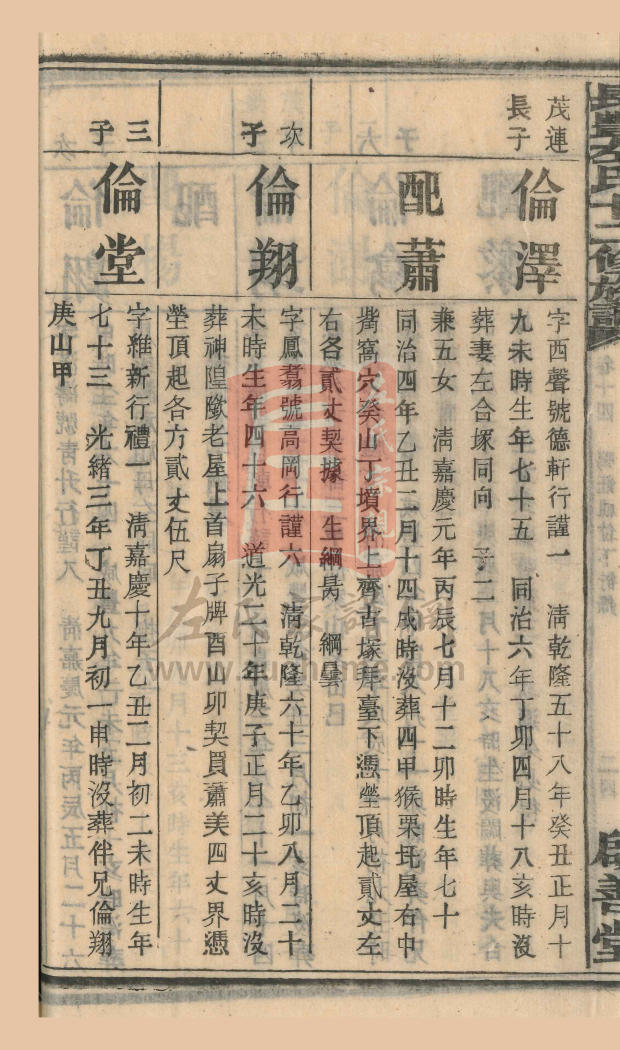 茂連
長子
倫澤
字西聲號德軒行謹一 清乾隆五十八年癸丑正月十
九未時生年七十五 同治六年丁卯四月十八亥時沒
葬妻左合塚同向 子二
兼五女 清嘉慶元年丙辰七月十二卯時生年七十
配蕭
同治四年乙丑二月十四戌時沒葬四甲猴栗坵屋右中
窩穴癸山丁墳界上齊古塚拜臺下憑塋頂起貳丈左
右各貳丈契據 生綱昺 綱曇
次子
倫翔
字鳳翥號高岡行謹六 清乾隆六十年乙卯八月二十
未時生年四十六 道光二十年庚子正月二十亥時沒
葬神隍墩老屋上首扇子牌酉山卯契買蕭美四丈界憑
塋頂起各方貳丈伍尺
三子
倫堂
字維新行禮一 清嘉慶十年乙丑二月初二未時生年
七十三 光緒三年丁丑九月初一申時沒葬伴兄倫翔
庚山甲
左氏十二修族譜
卷十四
二四
啟善堂
左氏家譜網
www.zuojiahome.com